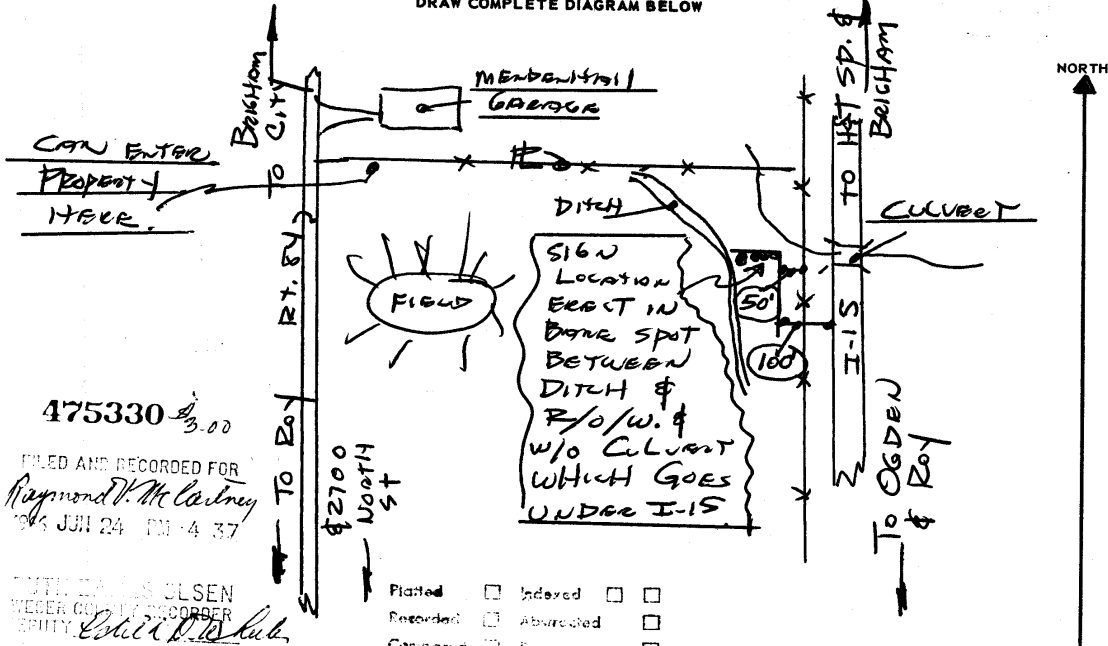 DRAW COMPLETE DIAGRAM BELOW
NORTH
BRIGHAM
CITY
TO
MENDENHALL
GARAGE
TO HOT SP. &
BRIGHAM
CAN ENTER
PROPERTY
HERE.
PL
DITCH
CULVERT
RT. 84
FIELD
SIGN
LOCATION
ERECT IN
BARE SPOT
BETWEEN
DITCH &
R/O/W. &
W/O CULVERT
WHICH GOES
UNDER I-15
50'
100'
I-15
475330 $3.00
FILED AND RECORDED FOR
Raymond V. McCartney
JUN 24 PM 4 37
TO ROY
& 2700
NORTH
ST
TO OGDEN
& ROY
OLSEN
WEBER COUNTY RECORDER
DEPUTY
Platted Indexed
Recorded Abstracted
Compared